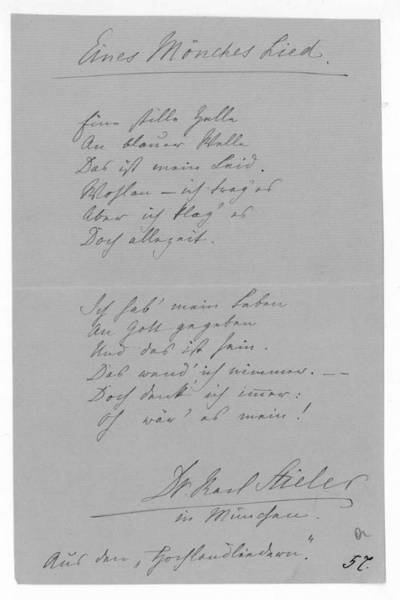 Eines Mönches Lied.
Eine stille Zelle
An blauer Welle
Das ist mein Leid.
Wohlan – ich trag' es
Aber ich klag' es
Doch allezeit.
Ich hab' mein Leben
An Gott gegeben
Und das ist sein.
Das wend' ich nimmer. –
Doch denk' ich immer:
O wär' es mein!
Dr. Karl Stieler
in München.
Aus den „Hochlandliedern".
57.